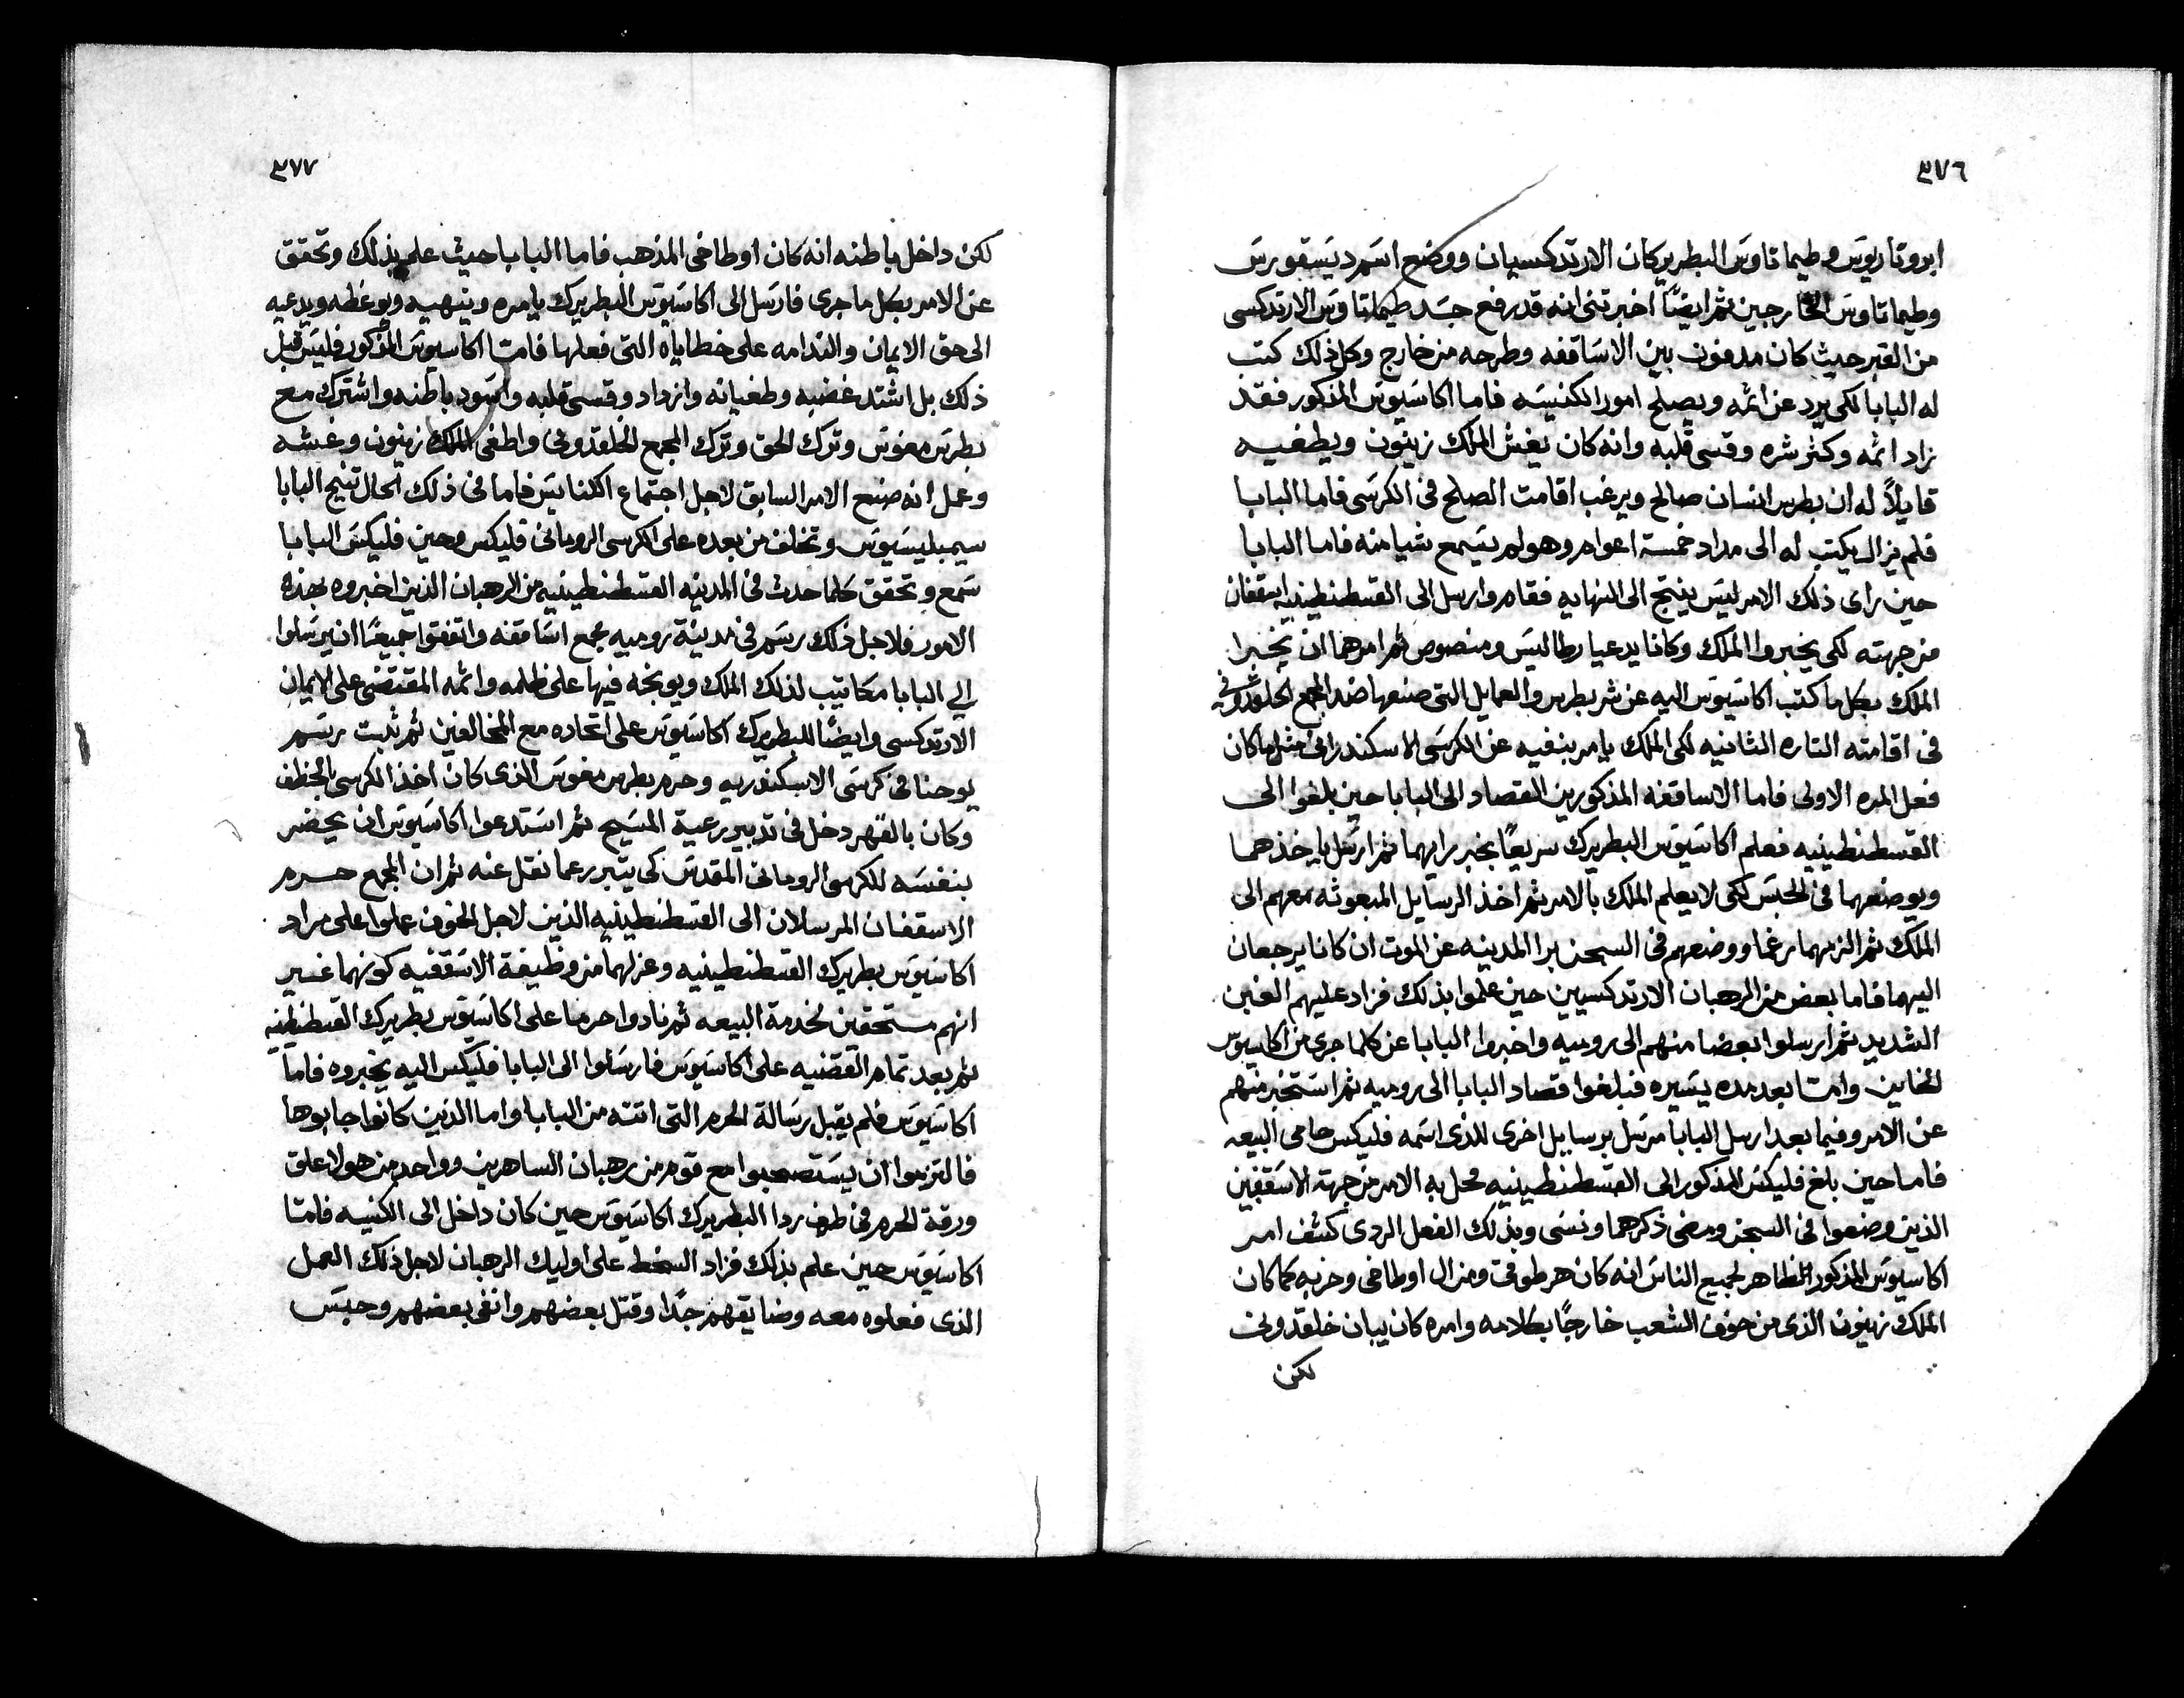 ٣٧٦
ابروتاريوس وطيماتاوس البطريركان الارتدكسيان ووضع اسم ديسقورس
وطيماتاوس الخارجين ثم ايضًا اخبرتني انه قد رفع جسد طيماتاوس الارتدكسى
من القبر حيث كان مدفون بين الاساقفه وطرحه من خارج وكل ذلك كتب
له البابا لكى يرد عن اثمه ويصلح امور الكنيسه فاما اكاسيوس المذكور فقد
زاد اثمه وكثر شره وقسى قلبه وانه كان يغش الملك زينون ويطغيه
قايلاً له ان بطرس انسان صالح ويرغب اقامت الصلح فى الكرسى فاما البابا
فلم يزال يكتب له الى مداد خمسة اعوام وهو لم يسمع شيا منه فاما البابا
حين راى ذلك الامر ليس ينتج الى النهايه فقام وارسل الى القسطنطينيه اسقفان
من جهته لكى يخبروا الملك وكانا يدعيا رطاليس ومنصوص ثم امرهما ان يخبرا
الملك بكل ما كتب اكاسيوس اليه عن شر بطرس والعمايل التى صنعها ضد المجمع الخلقدونى
فى اقامته التاره الثانيه لكى الملك يامر بنفيه عن الكرسى الاسكندرانى مثل ما كان
فعل المره الاولى فاما الاساقفه المذكورين القصاد الى البابا حين بلغوا الى
القسطنطينيه فعلم اكاسيوس البطريرك سريعًا بخبر رايهما ثم ارسل ياخذهما
ويوضعهما فى الحبس لكى لا يعلم الملك بالامر ثم اخذ الرسايل المبعوثه معهم الى
الملك ثم الزمهما رغما ووضعهم فى السجن برا المدينه عن الموت ان كانا يرجعان
اليهما فاما بعض من الرهبان الارتدكسيين حين علموا بذلك فزاد عليهم الغبن
الشديد ثم ارسلوا بعضا منهم الى روميه واخبروا البابا عن كلما جرى من اكاسيوس
الخاين وامتا بعد مده يسيره فبلغوا قصاد البابا الى روميه ثم استخبر منهم
عن الامر وفيما بعد ارسل البابا مرسل برسايل اخرى للذى اسمه فليكس حامى البيعه
فاما حين بلغ فليكس المذكور الى القسطنطينيه محل به الامر من جهة الاسقفين
الذين وضعوا فى السجن ومضى ذكرهما ونسى وبذلك الفعل الردى كشف امر
اكاسيوس المذكور الظاهر لجميع الناس انه كان هرطوقى ومنزال اوطاخى وحزبه كما كان
الملك زينون الذى من خوف الشعب خارجًا بكلامه وامره كان يبان خلقدونى
لكن
٣٧٧
لكن داخل باطنه انه كان اوطاخى المذهب فاما البابا حيث علم بذلك وتحقق
عن الامر بكل ما جرى فارسل الى اكاسيوس البطريرك يامره وينهيه ويوعظه ويدعيه
الى حق الايمان والندامه على خطاياه التى فعلها فامتا اكاسيوس المذكور فليس قبل
ذلك بل اشتد غضبه وطغيانه وازداد وقسى قلبه واسود باطنه واشترك مع
بطرس مغوس وترك الحق وترك المجمع الخلقدونى واطغى الملك زينون وغشه
وعمل انه صنع الامر السابق لاجل اجتماع الكنايس فاما فى ذلك الحال تنيح البابا
سيمبليسيوس وتخلف من بعده على الكرسى الرومانى فليكس وحين فليكس البابا
سمع وتحقق كلما حدث فى المدينه القسطنطينيه من الرهبان الذين اخبروه بهذه
الامور فلاجل ذلك رسم فى مدينة روميه مجمع اساقفه واتفقوا جميعًا ان يرسلوا
الى البابا مكاتيب لذلك الملك ويوبخه فيها على ظلمه واثمه المقتضى على الايمان
الارتدكسى وايضًا للبطريرك اكاسيوس على اتحاده مع المخالفين ثم ثبت رسم
يوحنا فى كرسى الاسكندريه وحرم بطرس مغوس الذى كان اخذ الكرسى بالخطف
وكان بالقهر دخل فى تدبير رعية المسيح ثم استدعوا اكاسيوس ان يحضر
بنفسه للكرسى الرومانى المقدس كى يتبرر عما نقل عنه ثم ان المجمع حرم
الاسقفان المرسلان الى القسطنطينيه الذين لاجل الخوف عملوا على مراد
اكاسيوس بطريرك القسطنطينيه وعزلهما من وظيفة الاسقفيه كونهما غير
انهم مستحقين لخدمة البيعه ثم نادوا حرما على اكاسيوس بطريرك القسطنطينيه
ثم بعد تمام القضيه على اكاسيوس فارسلوا الى البابا فليكس اليه يخبروه فاما
اكاسيوس فلم يقبل رسالة الحرم التى اتته من البابا واما الذين كانوا جابوها
فالتزموا ان يستصحبوا مع قوم من رهبان الساهرين وواحد من هولا علق
ورقة الحرم فى طرف ردا البطريرك اكاسيوس حين كان داخل الى الكنيسه فامتا
اكاسيوس حين علم بذلك فزاد السخط على اوليك الرهبان لاجل ذلك العمل
الذى فعلوه معه وضايقهم جدًا وقتل بعضهم وانفى بعضهم وحبس